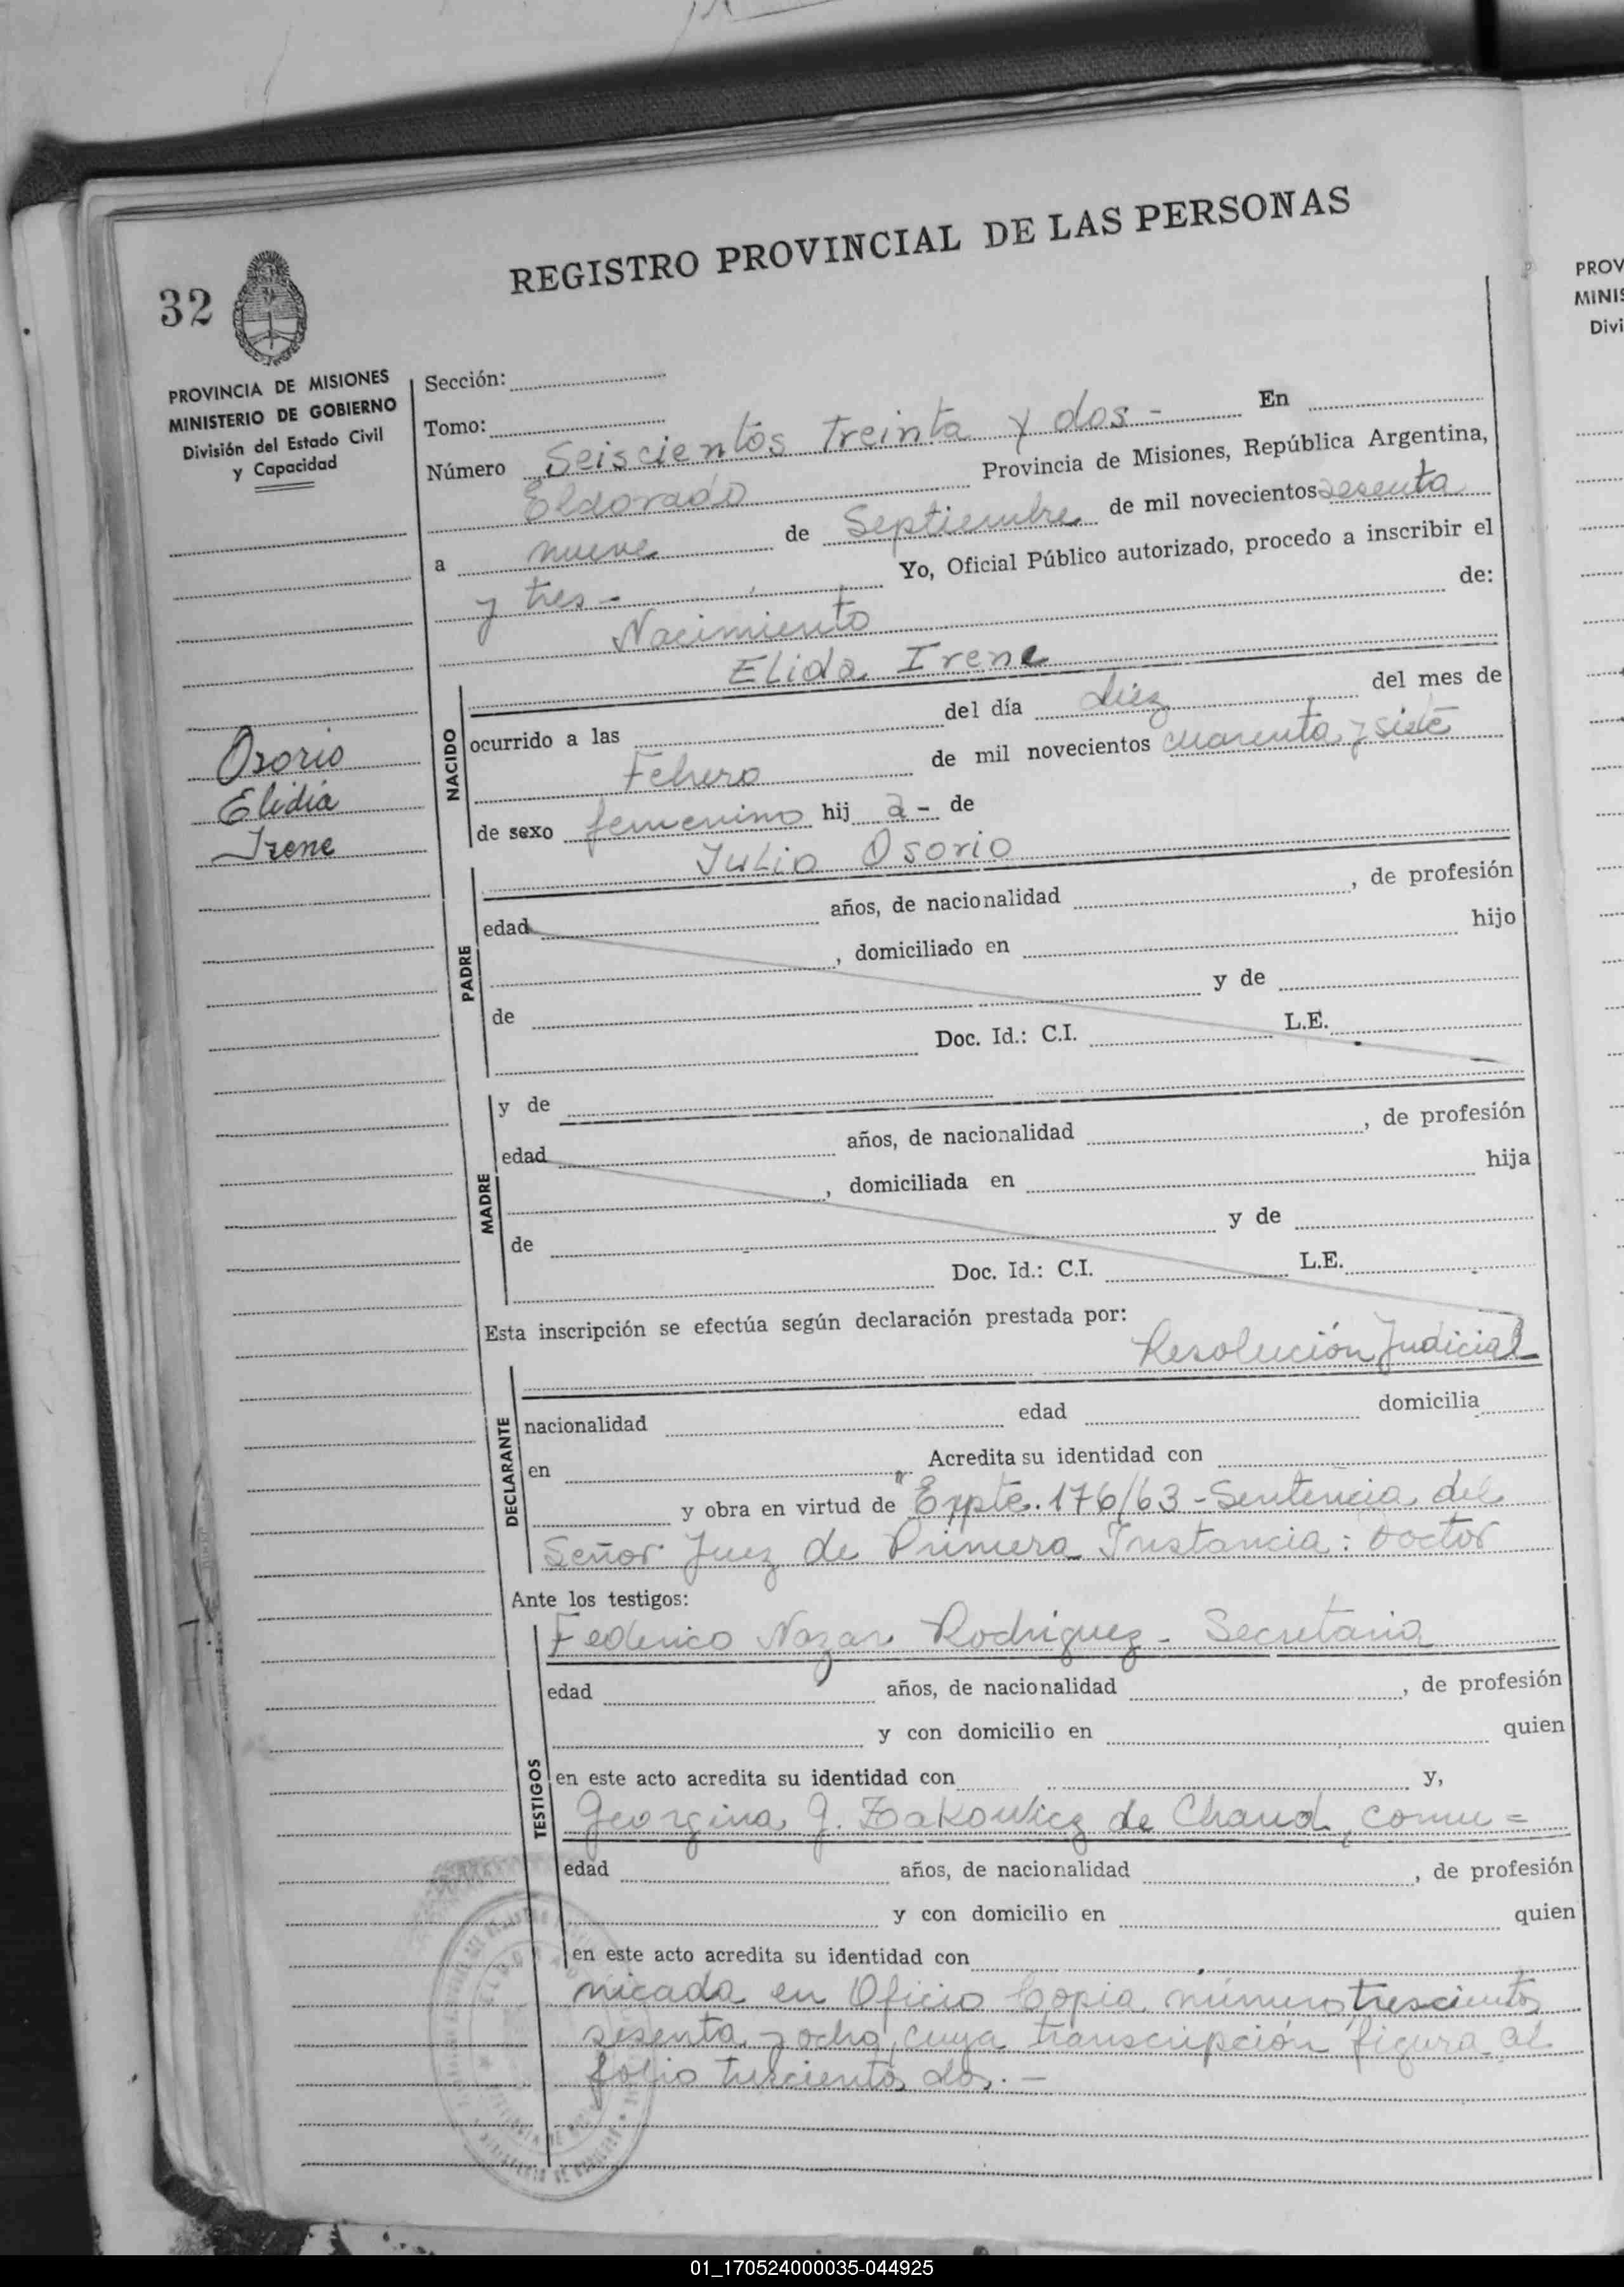 REGISTRO PROVINCIAL DE LAS PERSONAS
32
PROVINCIA DE MISIONES
MINISTERIO DE GOBIERNO
División del Estado Civil
y Capacidad
Osorio
Elidia
Irene
Sección:
Tomo:
Número Seiscientos treinta y dos - En
Eldorado Provincia de Misiones, República Argentina,
a nueve de Septiembre de mil novecientos sesenta
y tres - Yo, Oficial Público autorizado, procedo a inscribir el
Nacimiento de:
NACIDO
Elida Irene
ocurrido a las del día diez del mes de
Febrero de mil novecientos cuarenta y siete
de sexo femenino hij a - de
PADRE
Julio Osorio
edad años, de nacionalidad , de profesión
, domiciliado en hijo
de y de
Doc. Id.: C.I. L.E.
MADRE
y de
edad años, de nacionalidad , de profesión
, domiciliada en hija
de y de
Doc. Id.: C.I. L.E.
Esta inscripción se efectúa según declaración prestada por:
DECLARANTE
Resolución Judicial
nacionalidad edad domicilia
en Acredita su identidad con
y obra en virtud de "Expte. 176/63 - Sentencia del
Señor Juez de Primera Instancia: Doctor
Ante los testigos:
TESTIGOS
Federico Nazar Rodriguez - Secretaria
edad años, de nacionalidad , de profesión
y con domicilio en quien
en este acto acredita su identidad con y,
Georgina J. Zakowicz de Chaud, comu=
edad años, de nacionalidad , de profesión
y con domicilio en quien
en este acto acredita su identidad con
nicada en Oficio Copia número trescientos
sesenta y ocho, cuya transcripción figura al
folio trescientos dos. -
PROV
MINIS
Divi
01_170524000035-044925